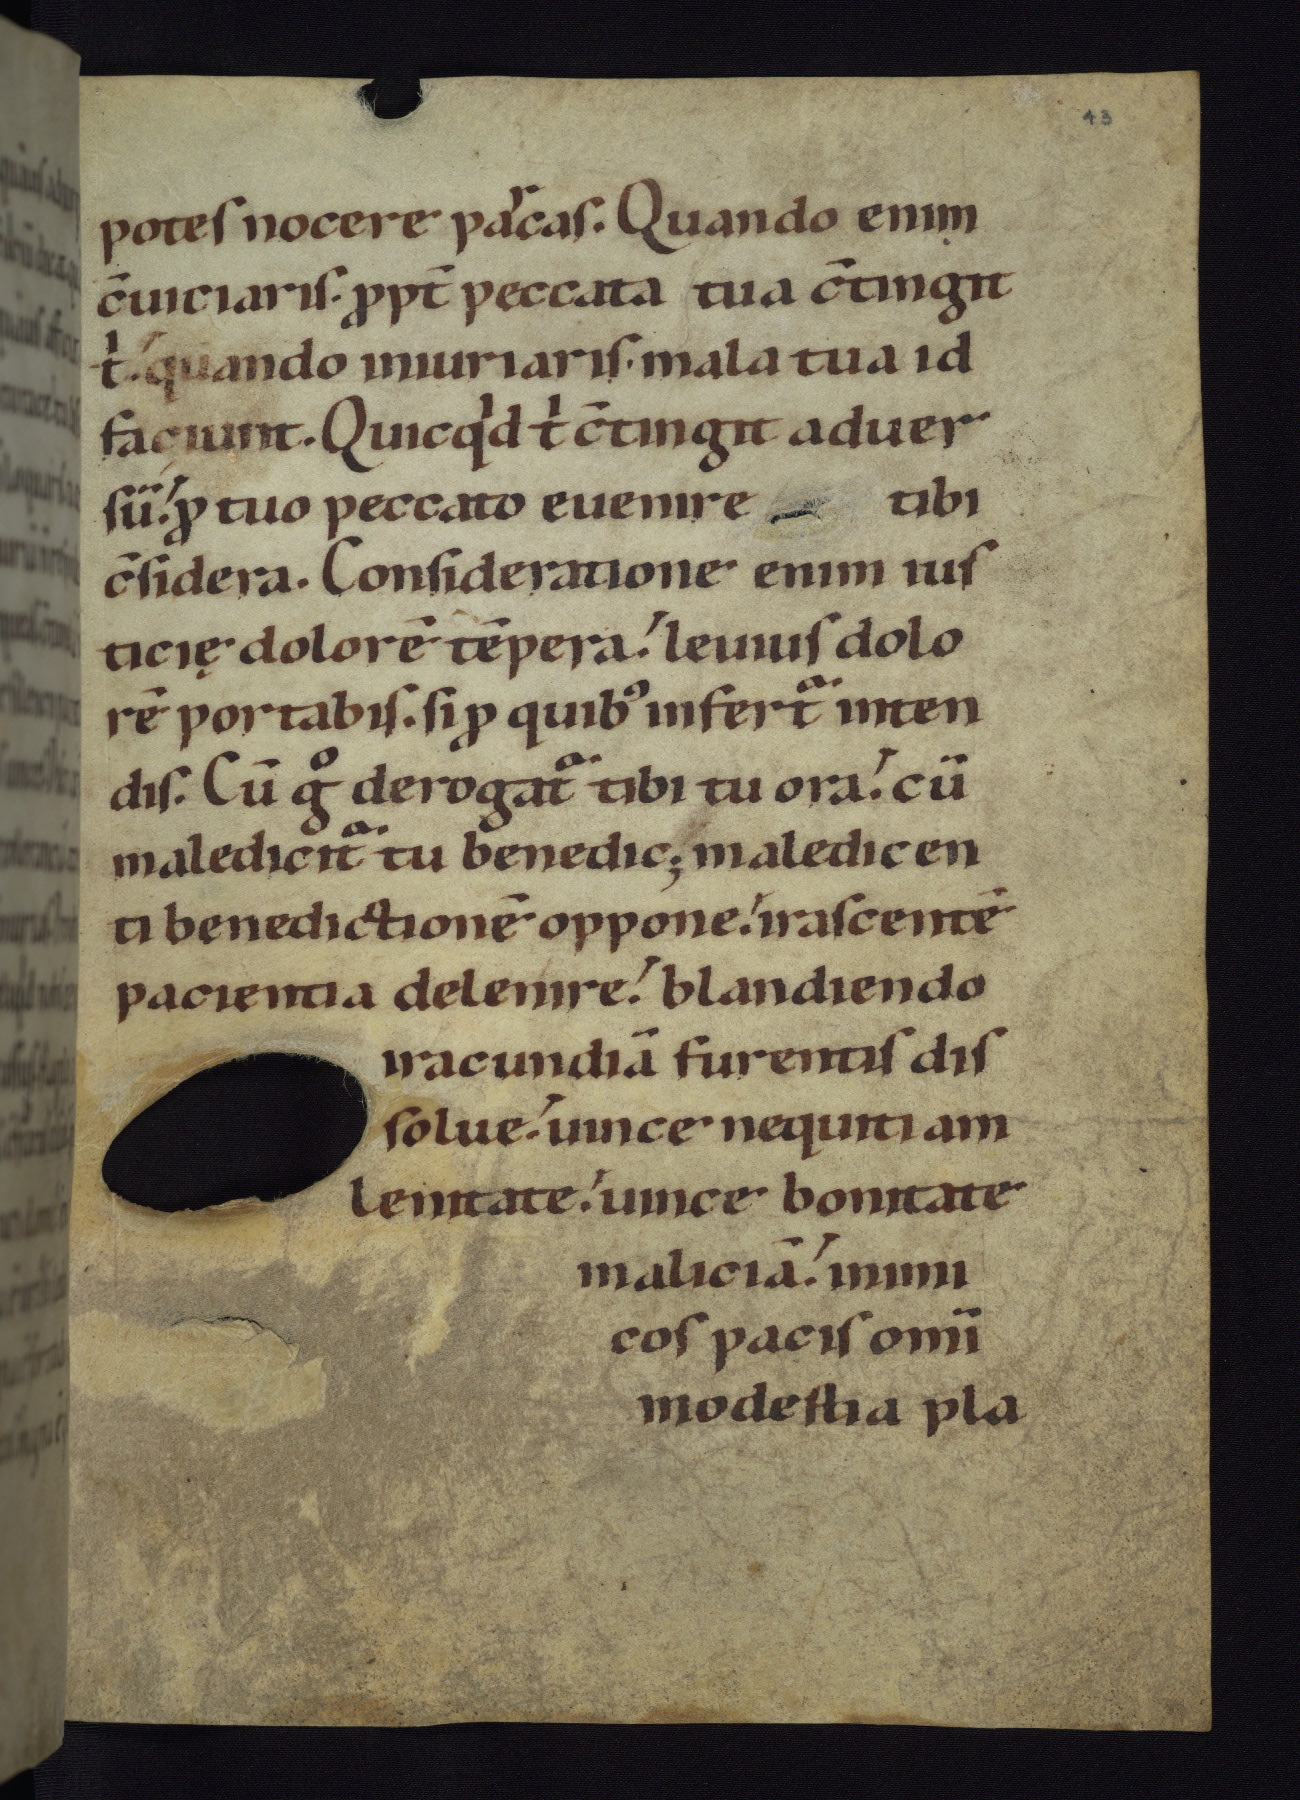 43
potes nocere pa͛cas. Quando enim
c̄uiciaris. ꝓpt̄ peccata tua c̄tingit
tͥ. quando iniuriaris. mala tua id
faciunt. Quicqͥd tͥ c̄tingit aduer
sū. ꝓ tuo peccato euenire tibi
c̄sidera. Consideratione enim ius
ticię dolorē tēpera. leuius dolo
rē portabis. si ꝓ quibꝰ infert᷑ inten
dis. Cū gͦ derogat᷑ tibi tu ora. cū
maledicit᷑ tu benedic; maledicen
ti benedictionē oppone. irascentē
pacientia delenire. blandiendo
iracundiā furentis dis
solue. uince nequitiam
lenitate. uince bonitate
maliciā. inimi
cos pacis omī
modestia pla